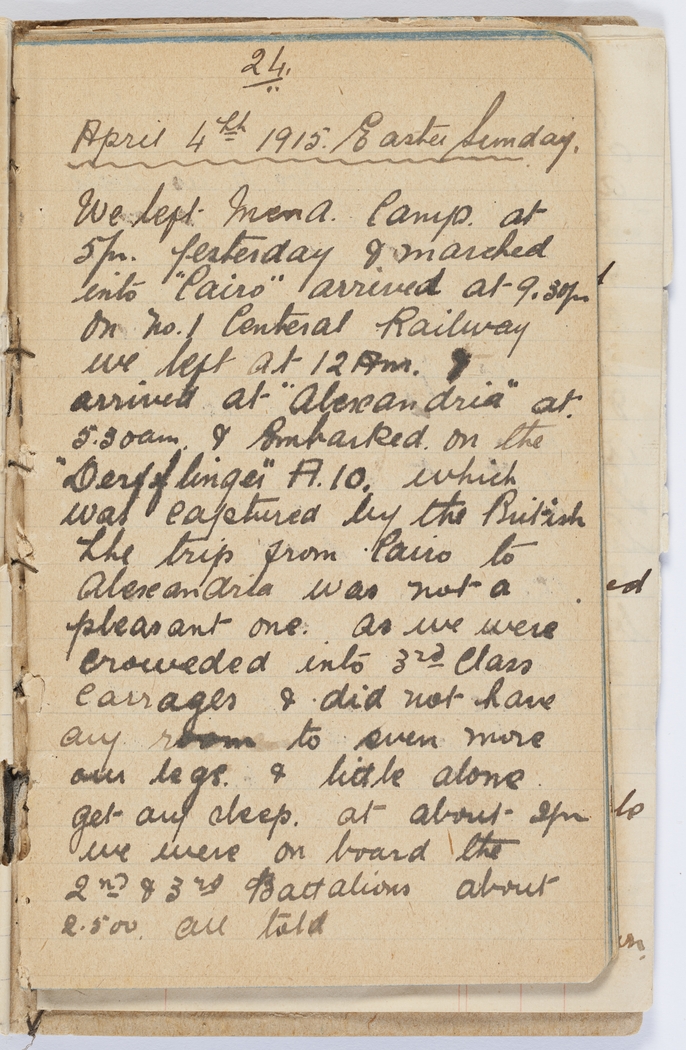 24.
April 4th 1915. Easter Sunday.
We left Mena. Camp. at
5pm. yesterday & marched
into "Cairo" arrived at 9.30pm
On No.1 Centeral Railway
we left at 12 Am. &
arrived at "Alexandria" at.
5.30am. & Embarked. on the
"Derfflinger" A.10. which
was captured by the British
the trip from Cairo to
Alexandria was not a
pleasant one. as we were
croweded into 3rd Class
Carrages & did not have
any room to even more
our legs. & little alone
get any sleep. at about 2pm
we were on board the
2nd & 3rd Battalions about
2.500. all told
ed
to